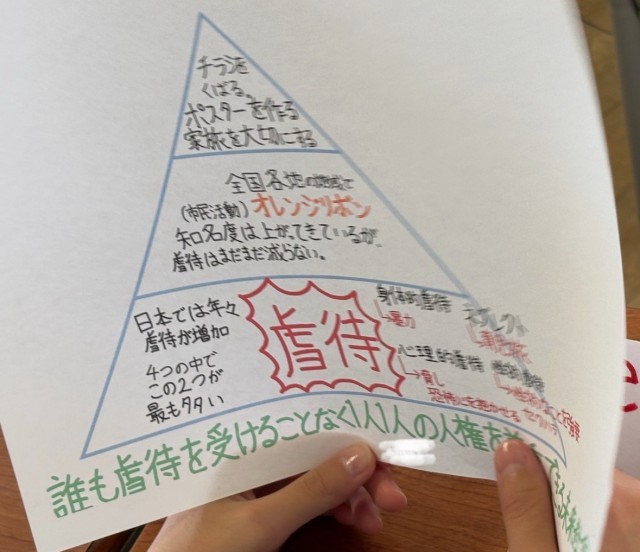 チラシを
くばる。
ポスターを作る
家族を大切にする
全国各地の地域で
(市民活動)オレンジリボン
知名度は上がってきているが、
虐待はまだまだ減らない。
日本では年々
虐待が増加
4つの中で
この2つが
最も多い
虐待
身体的虐待
→暴力
ネグレクト
心理的虐待
→脅し
恐怖心を抱かせる
性的虐待
誰も虐待を受けることなく1人1人の人権を